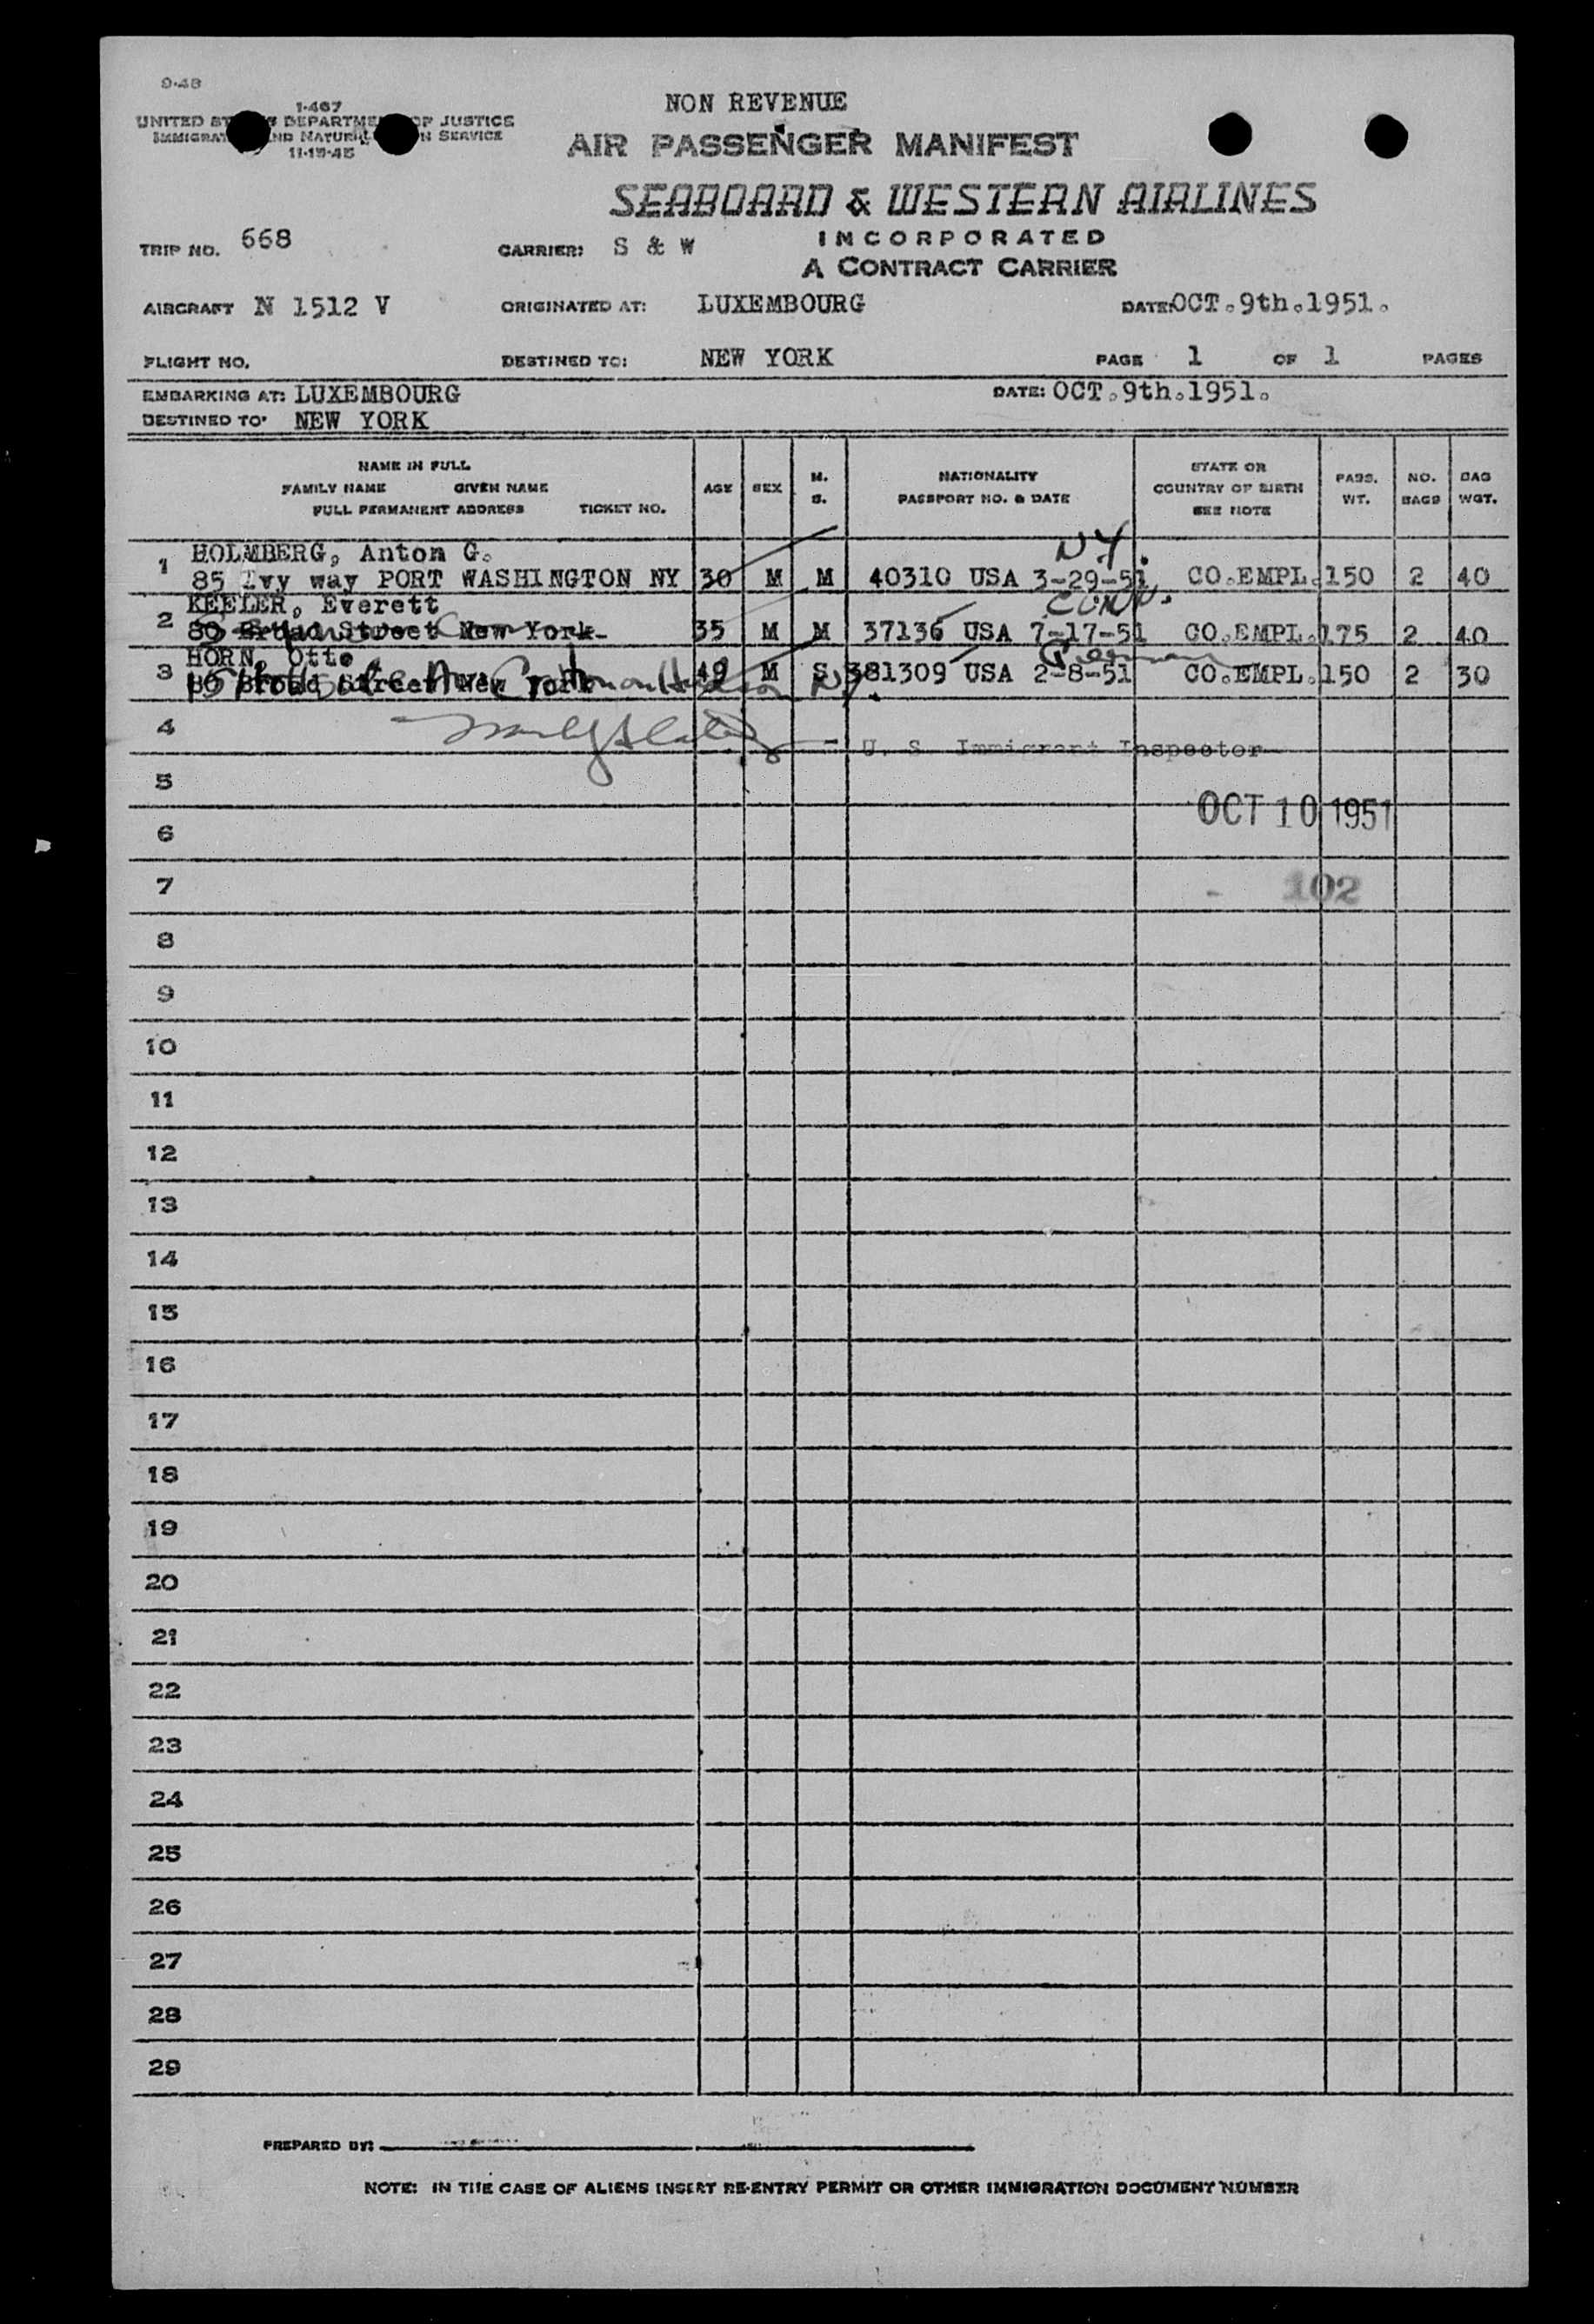 9-48
1-467
UNITED ST DEPARTME OF JUSTICE
IMMIGRAT ND NATURAL N SERVICE
11-15-45
NON REVENUE
AIR PASSENGER MANIFEST
SEABOARD & WESTERN AIRLINES
INCORPORATED
A CONTRACT CARRIER
TRIP NO. 668 CARRIER: S & W
AIRCRAFT N 1512 V ORIGINATED AT: LUXEMBOURG DATE: OCT.9th.1951.
FLIGHT NO. DESTINED TO: NEW YORK PAGE 1 OF 1 PAGES
EMBARKING AT: LUXEMBOURG DATE: OCT.9th.1951.
DESTINED TO: NEW YORK
NAME IN FULL
FAMILY NAME GIVEN NAME
FULL PERMANENT ADDRESS TICKET NO.
AGE
SEX
M.
S.
NATIONALITY
PASSPORT NO. & DATE
STATE OR
COUNTRY OF BIRTH
SEE NOTE
PASS.
WT.
NO.
BAGS
BAG
WGT.
1 HOLMBERG, Anton G. N.Y.
85 Ivy way PORT WASHINGTON NY 30 M M 40310 USA 3-29-51 CO.EMPL. 150 2 40
2 KEELER, Everett CONN.
80 Broad Street New York 35 M M 37136 USA 7-17-51 CO.EMPL. 175 2 40
3 HORN, Otto
80 Broad Street New York 49 M S 381309 USA 2-8-51 CO.EMPL. 150 2 30
Croton on Hudson N.Y.
4
U. S. Immigrant Inspector
5
OCT 10 1951
6
7
102
8
9
10
11
12
13
14
15
16
17
18
19
20
21
22
23
24
25
26
27
28
29
PREPARED BY:
NOTE: IN THE CASE OF ALIENS INSERT RE-ENTRY PERMIT OR OTHER IMMIGRATION DOCUMENT NUMBER